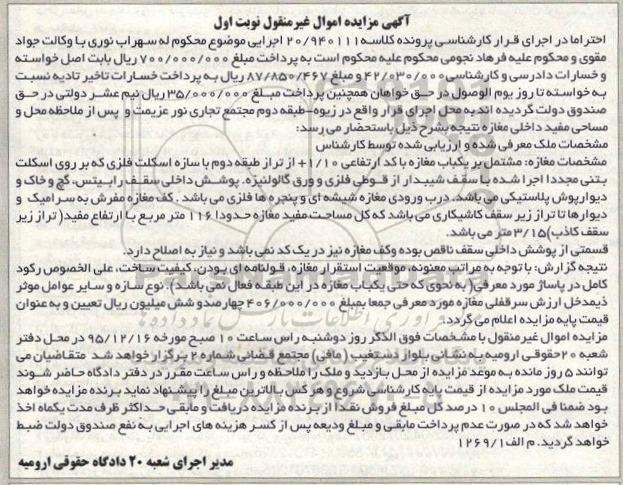 آگهی مزایده اموال غیرمنقول نوبت اول
احتراما در اجرای قرار کارشناسی پرونده کلاسه ۲۰/۹۴۰۱۱۱ اجرایی موضوع محکوم له سهراب نوری با وکالت جواد
مقوی و محکوم علیه فرهاد نجومی محکوم علیه محکوم است به پرداخت مبلغ ۷۰۰/۰۰۰/۰۰۰ ریال بابت اصل خواسته
و خسارات دادرسی و کارشناسی ۴۲/۰۳۰/۰۰۰ و مبلغ ۸۷/۸۵۰/۴۶۷ ریال به پرداخت خسارات تاخیر تادیه نسبت
به خواسته تا روز یوم الوصول در حق خواهان همچنین پرداخت مبلغ ۳۵/۰۰۰/۰۰۰ ریال نیم عشر دولتی در حق
صندوق دولت گردیده اند به محل اجرای قرار واقع در زیوه-طبقه دوم مجتمع تجاری نور عزیمت و پس از ملاحظه محل و
مساحی مفید داخلی مغازه نتیجه بشرح ذیل باستحضار می رسد:
مشخصات ملک معرفی شده و ارزیابی شده توسط کارشناس
مشخصات مغازه: مشتمل بر یکباب مغازه با کد ارتفاعی ۱/۱۰+ از تراز طبقه دوم با سازه اسکلت فلزی که بر روی اسکلت
بتنی مجددا اجرا شده با سقف شیبدار از قوطی فلزی و ورق گالوانیزه. پوشش داخلی سقف رابیتس، گچ و خاک و
دیوارپوش پلاستیکی می باشد. درب ورودی مغازه شیشه ای و پنجره ها فلزی می باشد. کف مغازه مفرش به سرامیک و
دیوارها تا تراز زیر سقف کاشیکاری می باشد که کل مساحت مفید مغازه حدودا ۱۱۶ متر مربع با ارتفاع مفید( تراز زیر
سقف کاذب) ۳/۱۵ متر می باشد.
قسمتی از پوشش داخلی سقف ناقص بوده وکف مغازه نیز در یک کد نمی باشد و نیاز به اصلاح دارد.
نتیجه گزارش: با توجه به مراتب معنونه، موقعیت استقرار مغازه، قولنامه ای بودن، کیفیت ساخت، علی الخصوص رکود
کامل در پاساژ مورد معرفی( به نحوی که حتی یکباب مغازه در این طبقه فعال نمی باشد)، نوع سازه و سایر عوامل موثر
ذیمدخل ارزش سرقفلی مغازه مورد معرفی جمعا بمبلغ ۴۰۶/۰۰۰/۰۰۰ چهارصدو شش میلیون ریال تعیین و به عنوان
قیمت پایه مزایده اعلام می گردد.
مزایده اموال غیرمنقول با مشخصات فوق الذکر روز دوشنبه راس ساعت ۱۰ صبح مورخه ۹۵/۱۲/۱۶ در محل دفتر
شعبه ۲۰حقوقی ارومیه به نشانی بلوار دستغیب (مافی) مجتمع قضائی شماره ۲ برگزار خواهد شد متقاضیان می
توانند ۵ روز مانده به موعد مزایده از محل بازدید و ملک را ملاحظه و راس ساعت مقرر در دفتر دادگاه حاضر شوند
قیمت ملک مورد مزایده از قیمت پایه کارشناسی شروع و هر کس بالاترین مبلغ را پیشنهاد نماید برنده مزایده خواهد
بود ضمنا فی المجلس ۱۰ درصد کل مبلغ فروش نقدا از برنده مزایده دریافت و مابقی حداکثر ظرف مدت یکماه اخذ
خواهد شد که در صورت عدم پرداخت مابقی و مبلغ ودیعه پس از کسر هزینه های اجرایی به نفع صندوق دولت ضبط
خواهد گردید. م الف ۱۲۶۹/۱
مدیر اجرای شعبه ۲۰ دادگاه حقوقی ارومیه